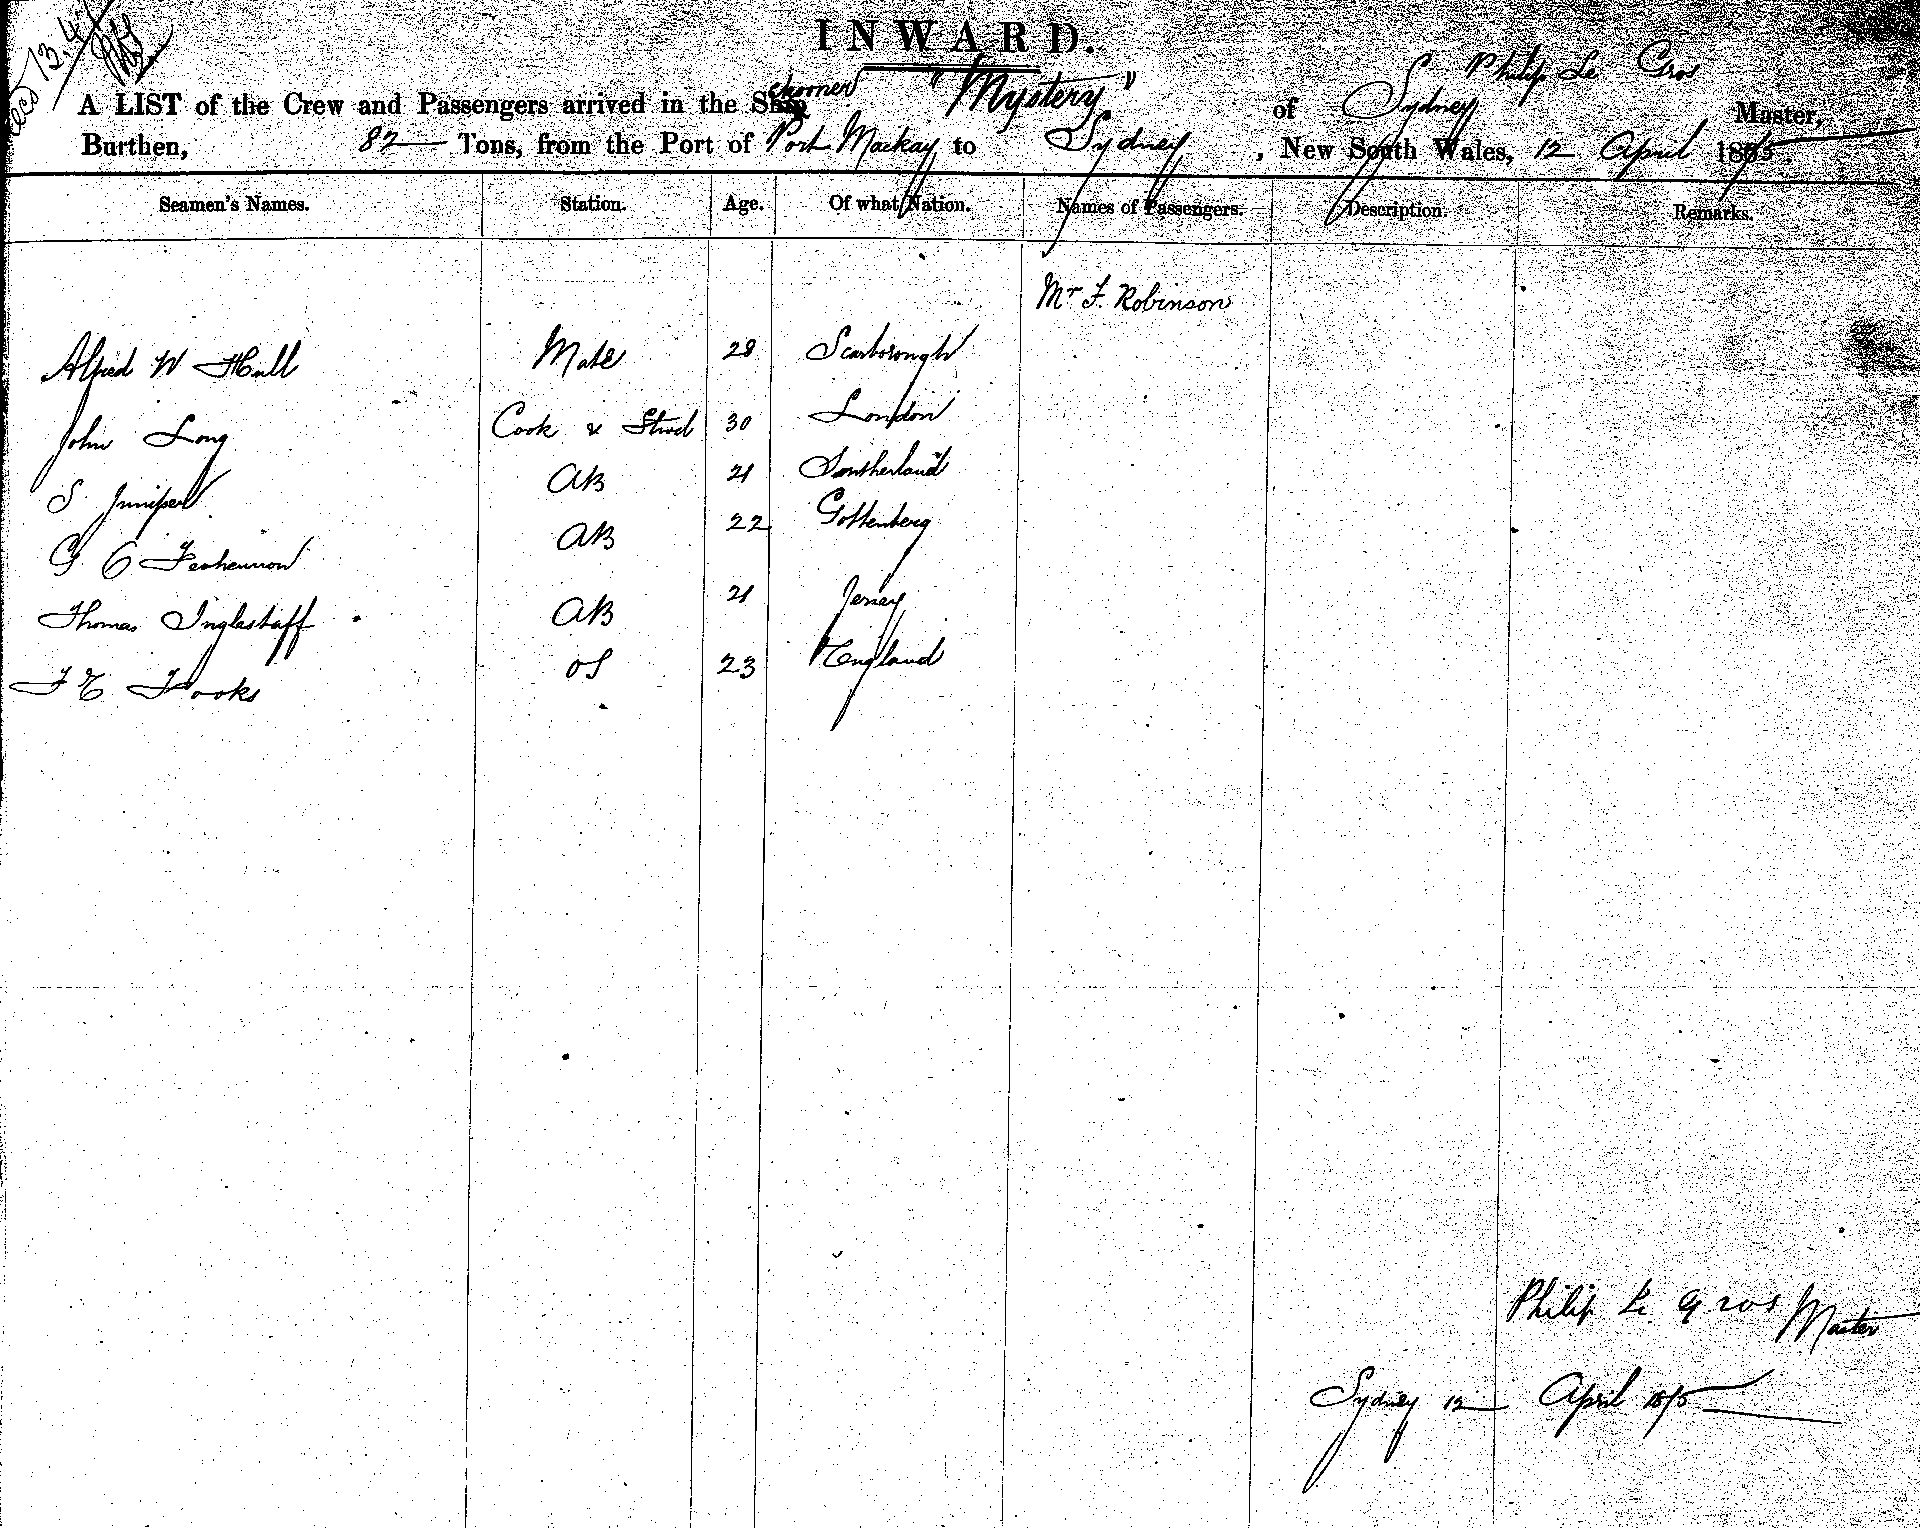 Recd 13.4
INWARD.
A LIST of the Crew and Passengers arrived in the Schooner "Mystery" of Sydney Philip Le Gros Master,
Burthen, 82 Tons, from the Port of Port Mackay to Sydney, New South Wales, 12 April 1875.
Seamen's Names. Station. Age. Of what Nation. Names of Passengers. Description. Remarks.
Mr F. Robinson
Alfred W Hull Mate 28 Scarborough
John Long Cook & Stwd 30 London
S Juniper AB 21 Southerland
G C AB 22 Gottenberg
Thomas Inglestaff AB 21 Jersey
F E Fooks OS 23 England
Philip Le Gros Master
Sydney 12 April 1875